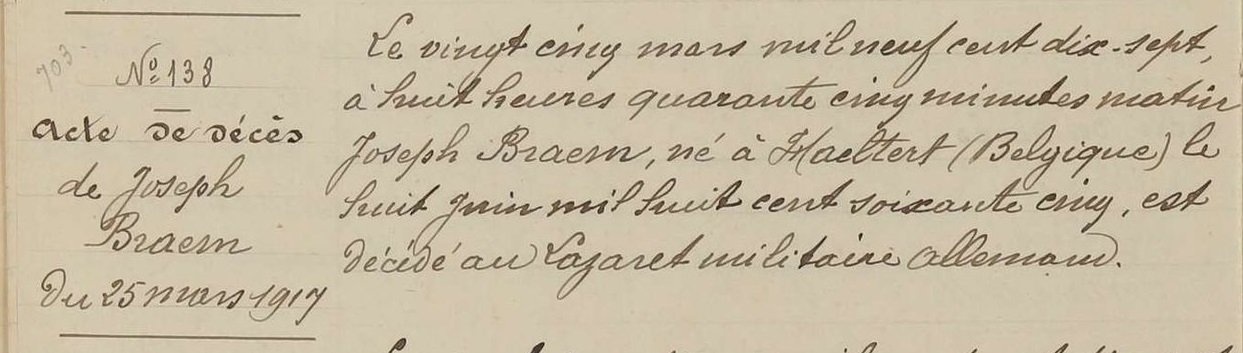 703
N° 138
Acte de décès
de Joseph
Braem
Du 25 mars 1917
Le vingt cinq mars mil neuf cent dix-sept,
à huit heures quarante cinq minutes matin
Joseph Braem, né à Haeltert (Belgique) le
huit Juin mil huit cent soixante cinq, est
décédé au Lazaret militaire allemand.